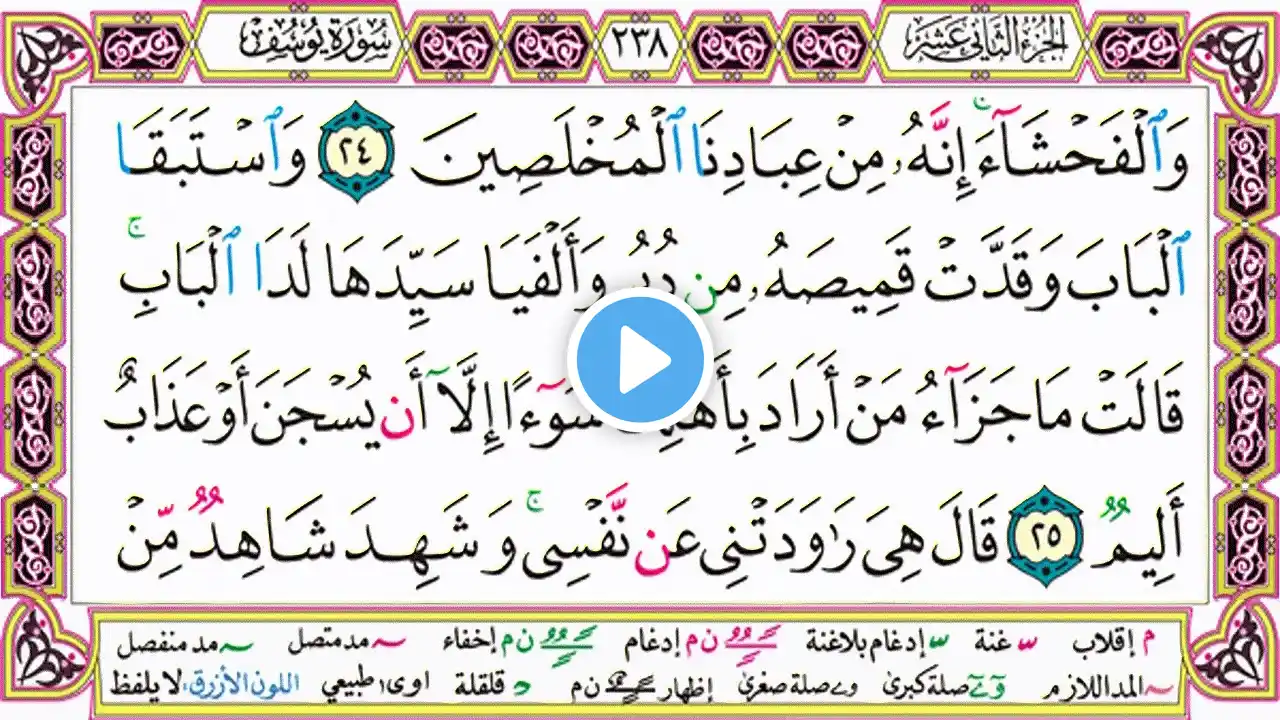 الجزء الثاني عشر ٢٣٨ سورة يوسف
وَٱلْفَحْشَآءَ ۚ إِنَّهُۥ مِنْ عِبَادِنَا ٱلْمُخْلَصِينَ ٢٤ وَٱسْتَبَقَا
ٱلْبَابَ وَقَدَّتْ قَمِيصَهُۥ مِن دُبُرٍ وَأَلْفَيَا سَيِّدَهَا لَدَا ٱلْبَابِ ۚ
قَالَتْ مَا جَزَآءُ مَنْ أَرَادَ بِأَهْلِكَ سُوٓءًا إِلَّآ أَن يُسْجَنَ أَوْ عَذَابٌ
أَلِيمٌ ٢٥ قَالَ هِىَ رَٰوَدَتْنِى عَن نَّفْسِى ۚ وَشَهِدَ شَاهِدٌ مِّنْ
م إقلاب غنة إدغام بلاغنة ن م إدغام ن م إخفاء مد متصل مد منفصل
المد اللازم صلة كبرى صلة صغرى إظهار ن م قلقلة اوى طبيعي اللون الأزرق، لا يلفظ